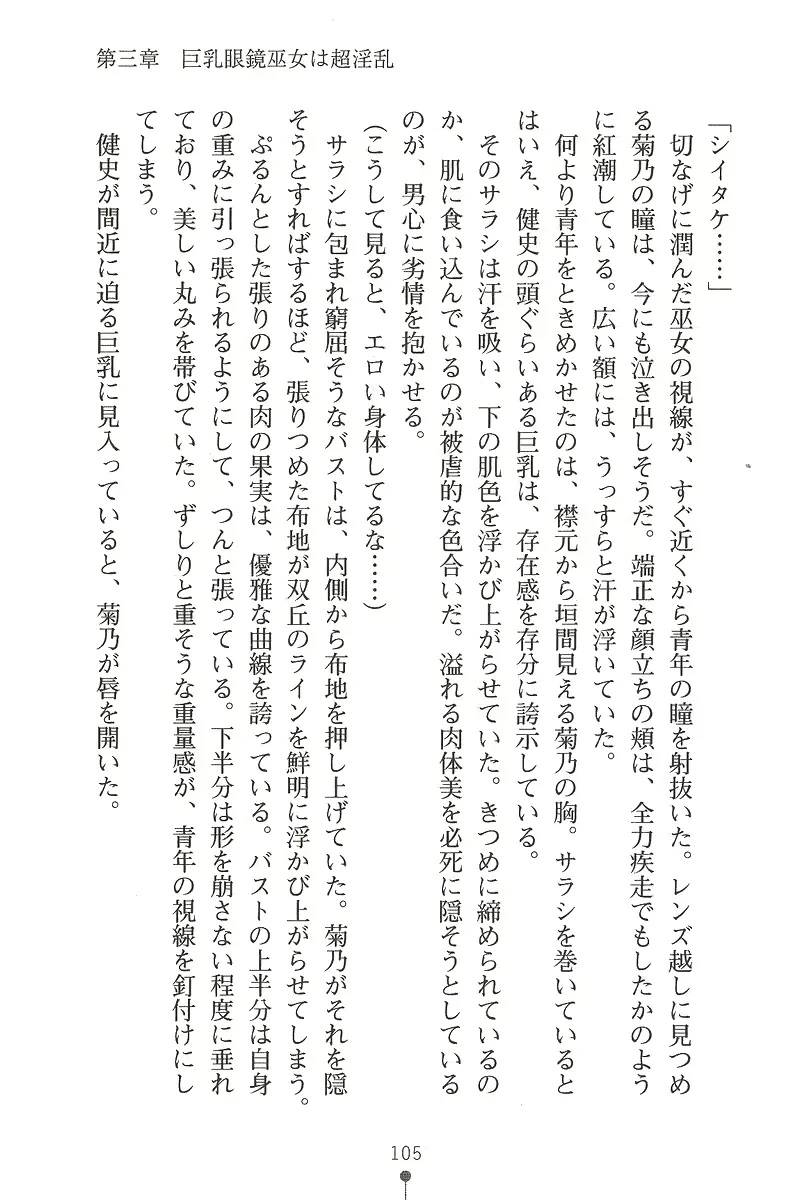 第三章　巨乳眼鏡巫女は超淫乱
「シイタケ……」
　切なげに潤んだ巫女の視線が、すぐ近くから青年の瞳を射抜いた。レンズ越しに見つめ
る菊乃の瞳は、今にも泣き出しそうだ。端正な顔立ちの頬は、全力疾走でもしたかのよう
に紅潮している。広い額には、うっすらと汗が浮いていた。
　何より青年をときめかせたのは、襟元から垣間見える菊乃の胸。サラシを巻いていると
はいえ、健史の頭ぐらいある巨乳は、存在感を存分に誇示している。
　そのサラシは汗を吸い、下の肌色を浮かび上がらせていた。きつめに締められているの
か、肌に食い込んでいるのが被虐的な色合いだ。溢れる肉体美を必死に隠そうとしている
のが、男心に劣情を抱かせる。
（こうして見ると、エロい身体してるな……）
　サラシに包まれ窮屈そうなバストは、内側から布地を押し上げていた。菊乃がそれを隠
そうとすればするほど、張りつめた布地が双丘のラインを鮮明に浮かび上がらせてしまう。
　ぷるんとした張りのある肉の果実は、優雅な曲線を誇っている。バストの上半分は自身
の重みに引っ張られるようにして、つんと張っている。下半分は形を崩さない程度に垂れ
ており、美しい丸みを帯びていた。ずしりと重そうな重量感が、青年の視線を釘付けにし
てしまう。
　健史が間近に迫る巨乳に見入っていると、菊乃が唇を開いた。
105